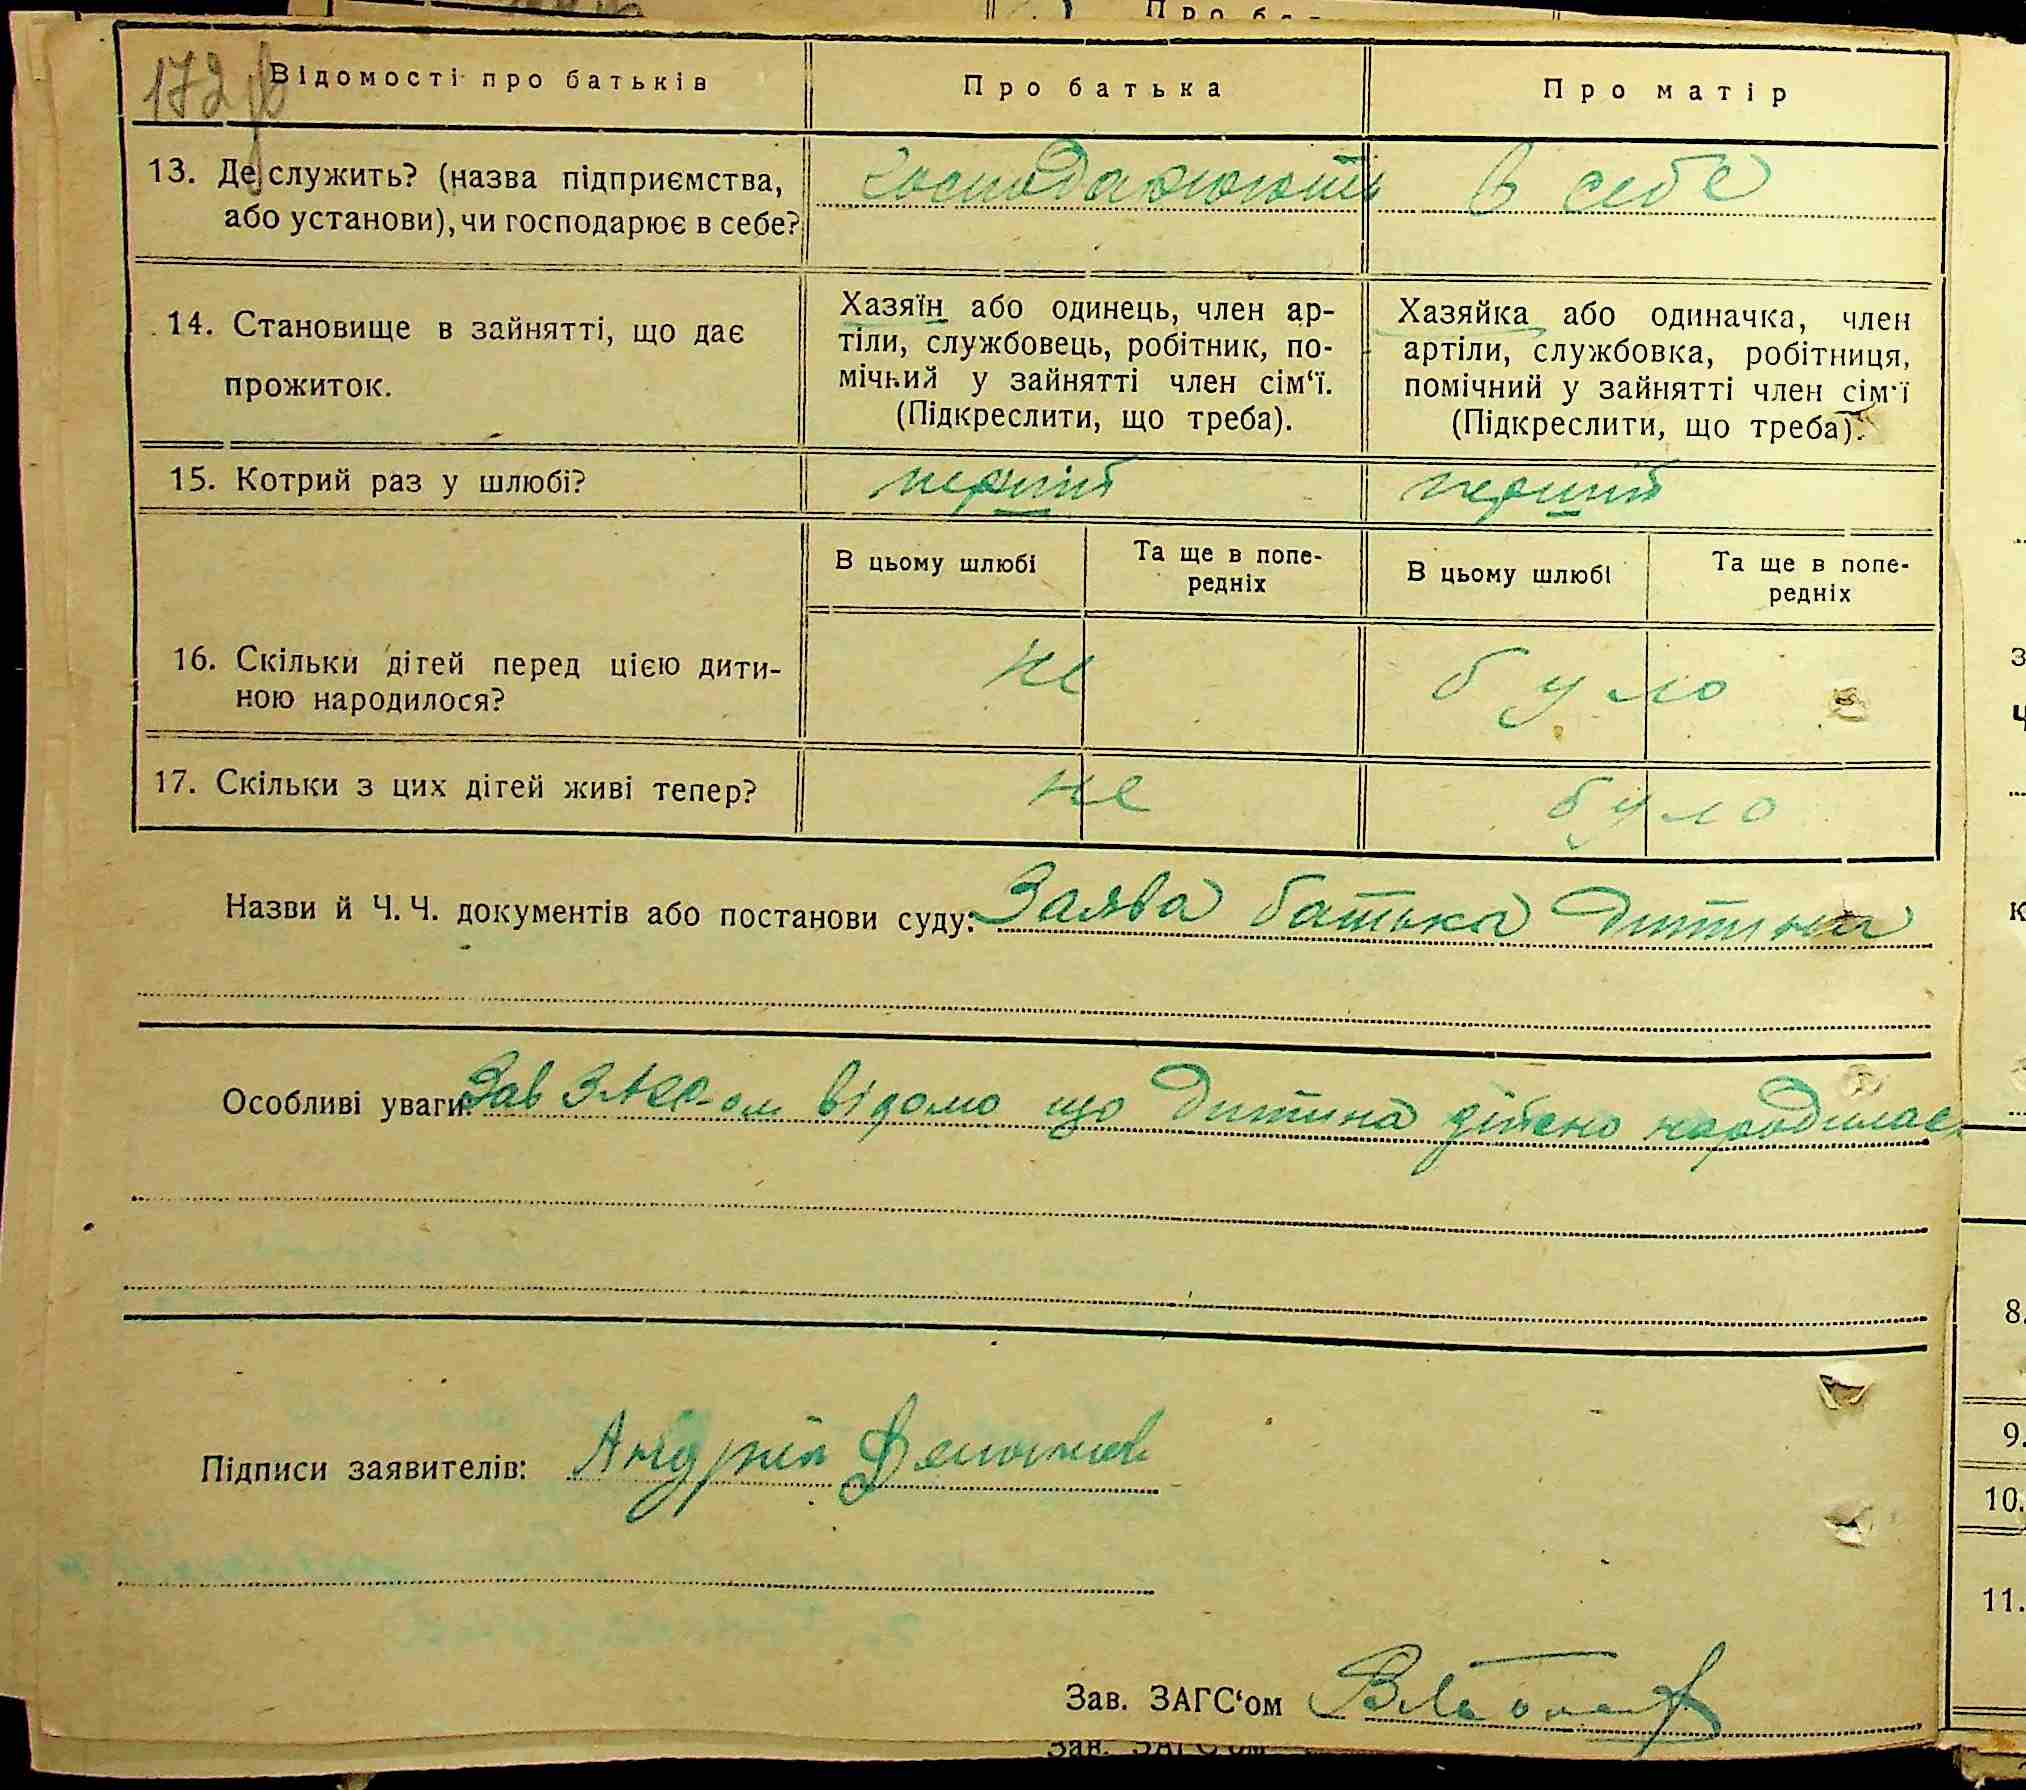 172
Відомості про батьків
Про батька
Про матір
13. Де служить? (назва підприємства,
або установи), чи господарює в себе?
господарюють в себе
14. Становище в зайнятті, що дає
прожиток.
Хазяїн або одинець, член ар-
тіли, службовець, робітник, по-
мічний у зайнятті член сім‘ї.
(Підкреслити, що треба).
Хазяйка або одиначка, член
артіли, службовка, робітниця,
помічний у зайнятті член сім‘ї
(Підкреслити, що треба).
15. Котрий раз у шлюбі?
перший
перший
В цьому шлюбі
Та ще в попе-
редніх
В цьому шлюбі
Та ще в попе-
редніх
16. Скільки дітей перед цією дити-
ною народилося?
не було
17. Скільки з цих дітей живі тепер?
не було
Назви й Ч. Ч. документів або постанови суду: Заява батька дитини
Особливі уваги: Зав ЗАГС-ом відомо що дитина дійсно народилась
Підписи заявителів: Андрій
Зав. ЗАГС‘ом
8.
9.
10.
11.